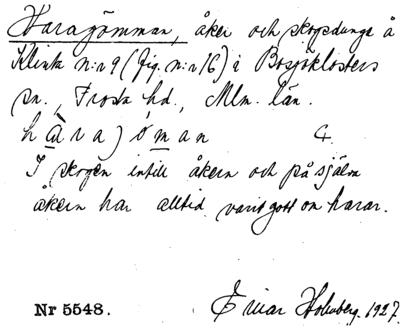 Haragömman, åker och skogsdunge å
Klinta n:r 9 (fig. n:r 16) i Bosjöklosters
sn., Frosta hd., Mlm. län.
hàra)öman 4.
I skogen intill åkern och på själva
åkern har alltid varit gott om harar.
Nr 5548. Einar Holmberg. 1927.